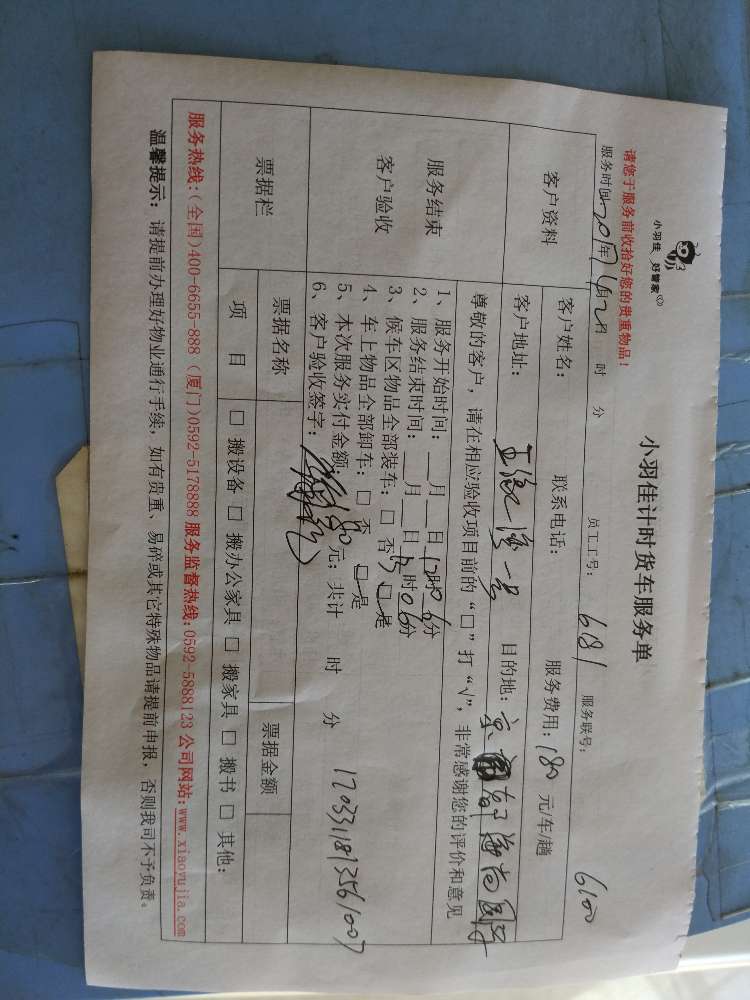 小羽佳 好管家
小羽佳计时货车服务单
请您于服务前收拾好您的贵重物品！
6100
服务时间: 年 月 日 时 分 员工工号: 681 服务联号:
客户资料
客户姓名: 联系电话: 服务费用: 180 元/车/趟
客户地址: 湾一号 目的地:
尊敬的客户，请在相应验收项目前的“□”打“√”，非常感谢您的评价和意见
服务结束
客户验收
1、服务开始时间: __月__日 时06分
2、服务结束时间: __月__日 时06分
3、候车区物品全部装车: □ 否 □ 是
4、车上物品全部卸车: □ 否 □ 是
5、本次服务实付金额: 180 元; 共计 时 分
6、客户验收签字:
170331813561007
票据栏
票据名称 票据金额
项 目 □ 搬设备 □ 搬办公家具 □ 搬家具 □ 搬书 □ 其他:
服务热线: (全国)400-6655-888 (厦门)0592-5178888 服务监督热线:0592-5888123 公司网站:www.xiaoyujia.com
温馨提示: 请提前办理好物业通行手续，如有贵重、易碎或其它特殊物品请提前申报，否则我司不予负责。